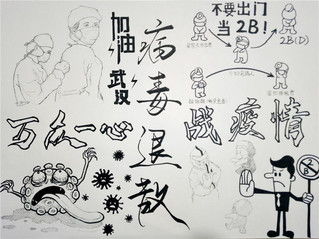 加油武汉
病毒退散
不要出门
当2B!
2B(D)
万众一心
战疫情